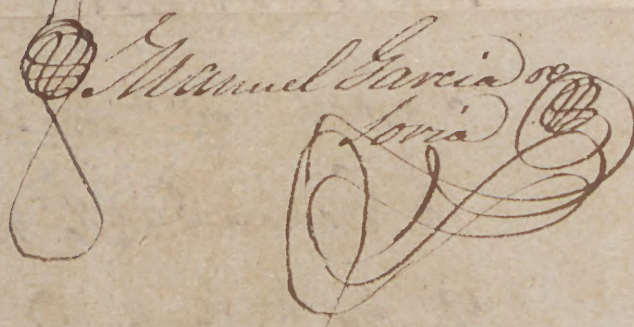 Manuel Garcia de
Soria